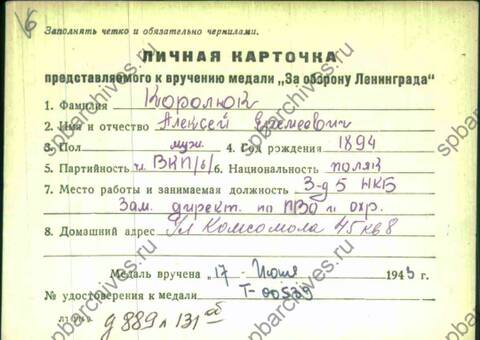 6
Заполнять четко и обязательно чернилами.
ЛИЧНАЯ КАРТОЧКА
представляемого к вручению медали „За оборону Ленинграда“
1. Фамилия Королюк
2. Имя и отчество Алексей Еремеевич
3. Пол муж. 4. Год рождения 1894
5. Партийность ч. ВКП/б/ 6. Национальность поляк
7. Место работы и занимаемая должность З-д 5 НКБ
Зам. директ. по ПВО и охр.
8. Домашний адрес Ул Комсомола 45 кв 8
Медаль вручена „17 Июля 1943 г.
№ удостоверения к медали Т-00539
д 889 л 131 об
spbarchives.ru
spbarchives.ru
spbarchives.ru
spbarchives.ru
spbarchives.ru